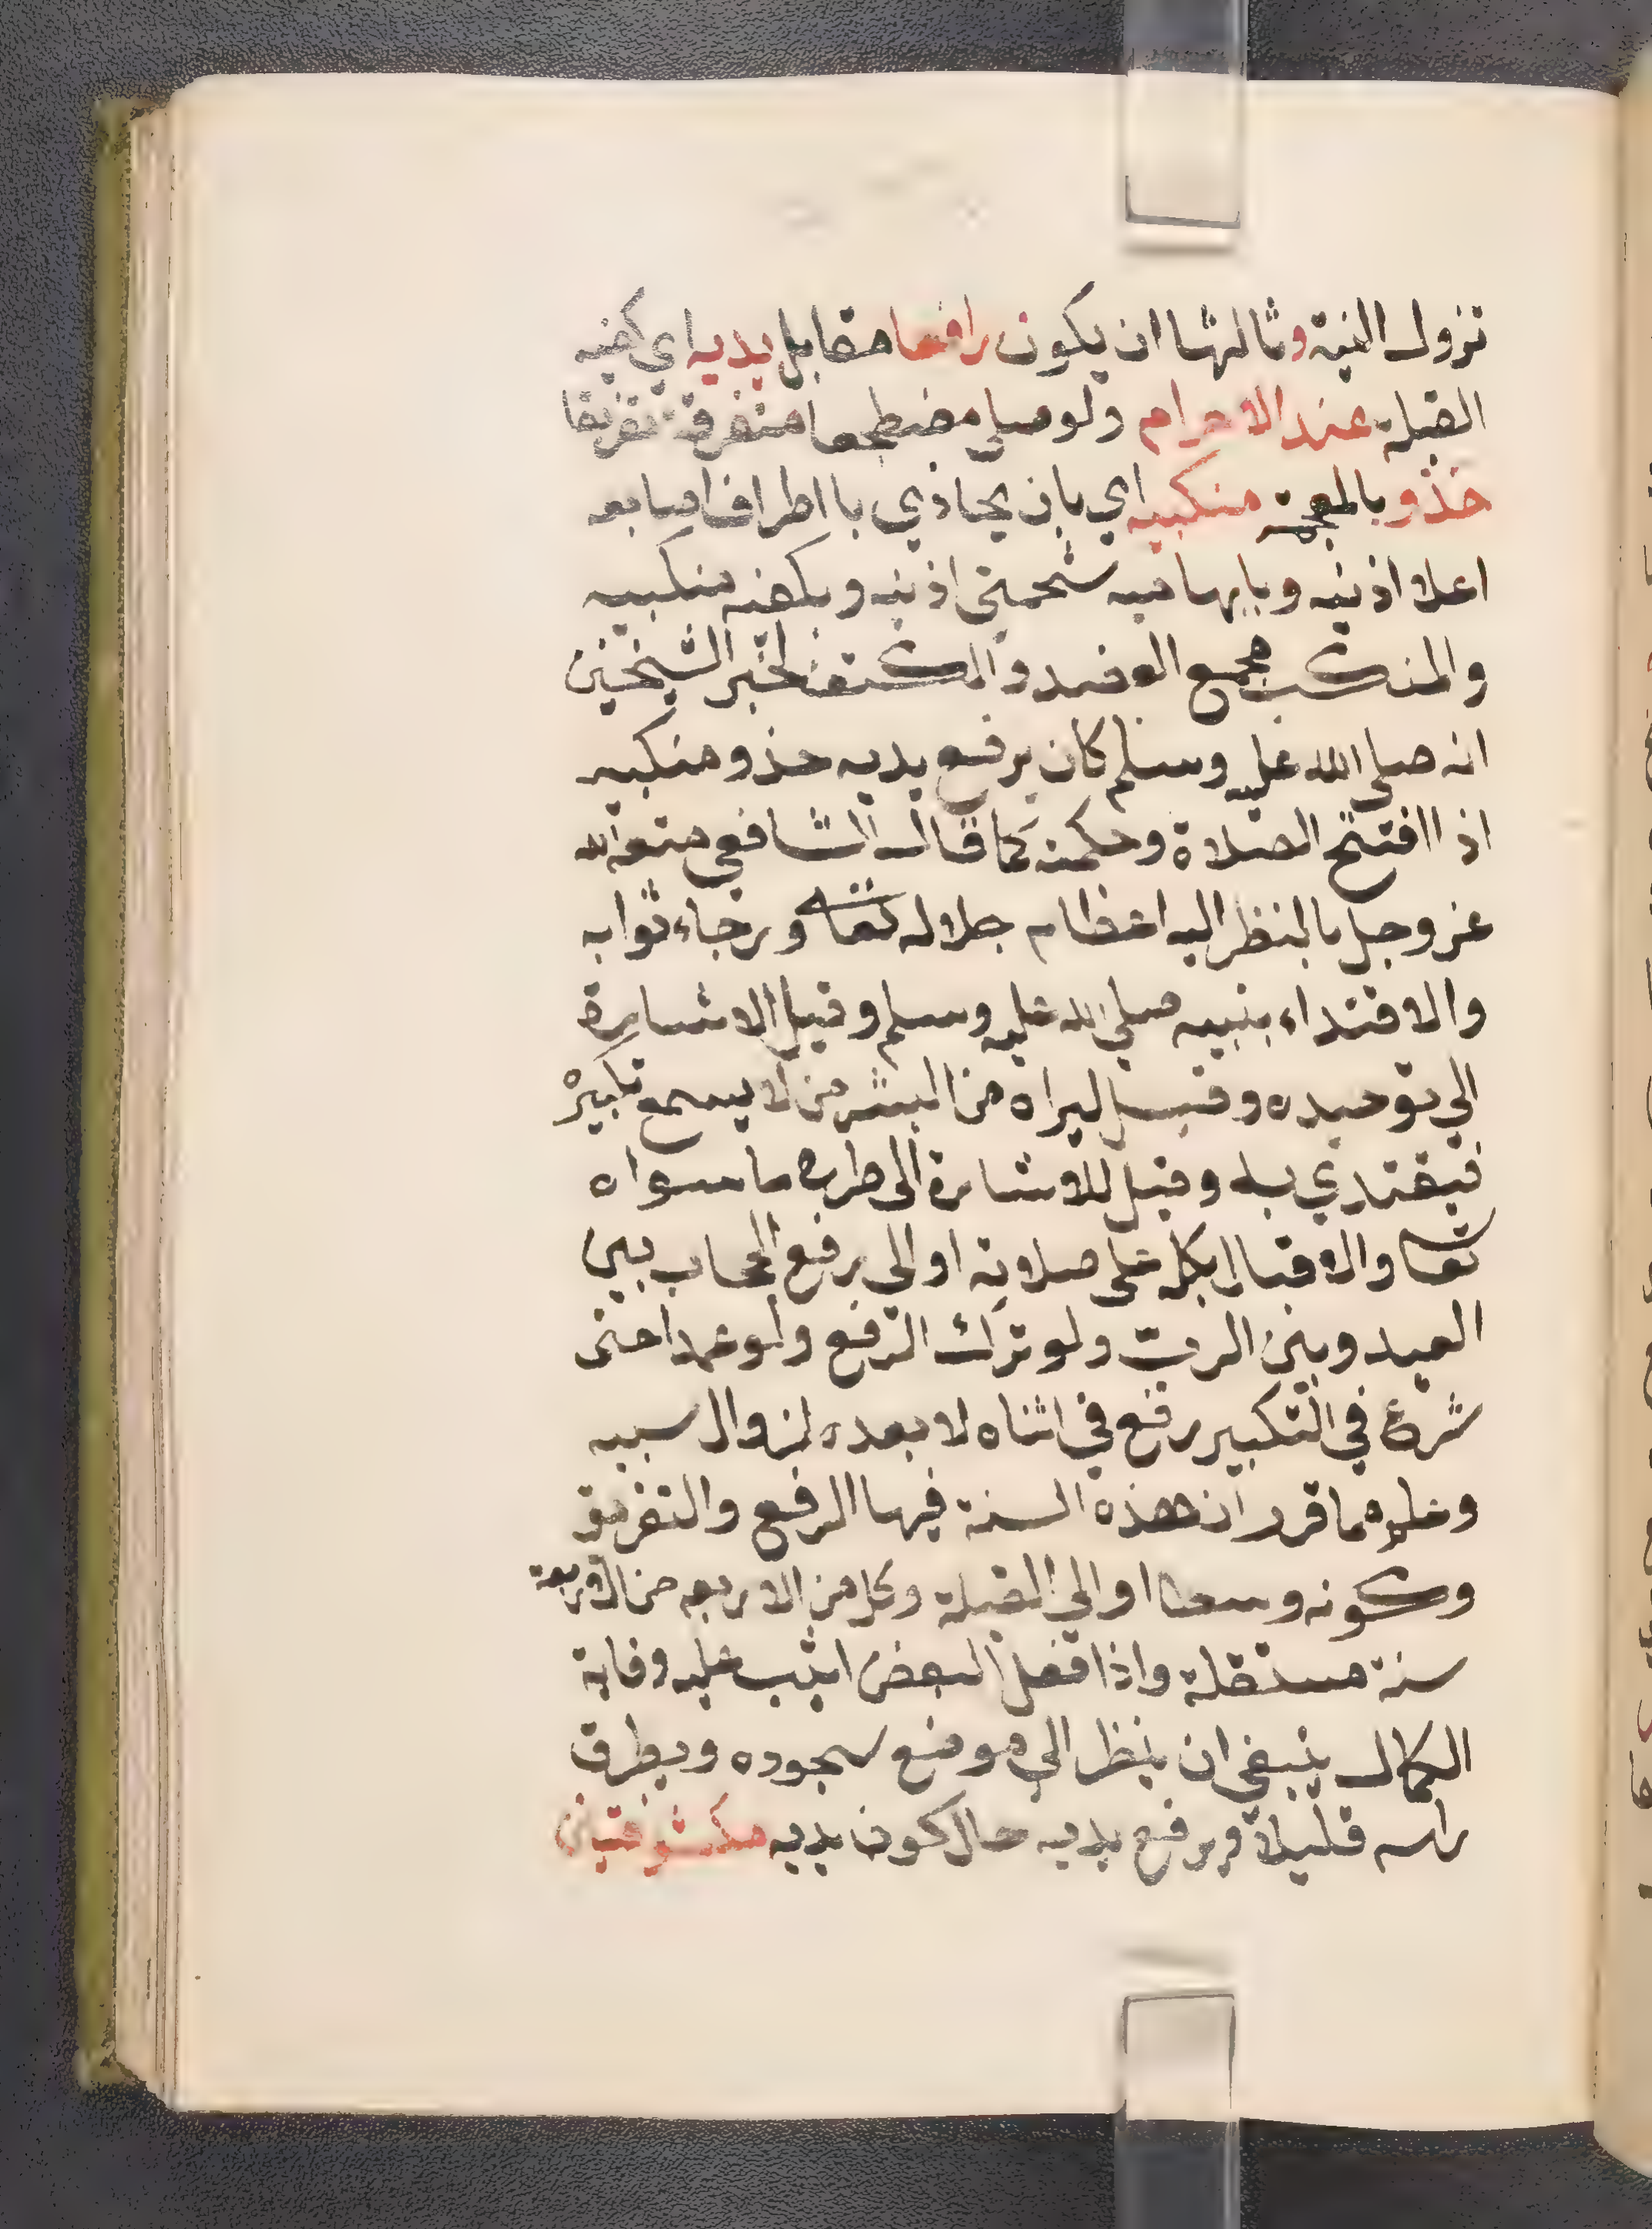 تزول النية وثالثها ان يكون رافعا مقابل يديه اي كفيه
القبلة عند الاحرام ولو صلي مضطجعا متفرقة تفريقا
حذو بالمعجمة منكبيه اي بان يحاذي با اطراف اصابعه
اعلا اذنيه وبابهاميه شحمتي اذنيه وبكفيه منكبيه
والمنكب مجمع العضد والكتف لخبر الشيخين
انه صلي الله عليه وسلم كان يرفع يديه حذو منكبيه
اذا افتتح الصلاة وحكمته كما قال الشافعي الله
عز وجل بالنظر اليه اعظام جلاله تعالى ورجاء ثوابه
والاقتداء بنبيه صلي الله عليه وسلم وقيل الاشارة
الي توحيده وقيل ليراه من البشر من لا يسمع تكبيره
فيقتدي به وقيل للاشارة الى طرح ما سواه
تعالى والاقبال بكل على صلاته او الى رفع الحجاب بين
العبد وبين الرب ولو ترك الرفع ولو عمدا حتى
شرع في التكبير رفع في اثناه لا بعده لزوال سببه
وعلم مما قرر ان هذه السنة فيها الرفع والتفريق
وكونه وسطا والي القبلة وكل من الاربعه من الاربعة
سنة مستقلة واذا فعل البعض اثيب عليه وفاته
الكمال ينبغي ان ينظر الي موضع سجوده ويطرق
راسه قليلا ويرفع يديه حال كون يديه مكشوفتين